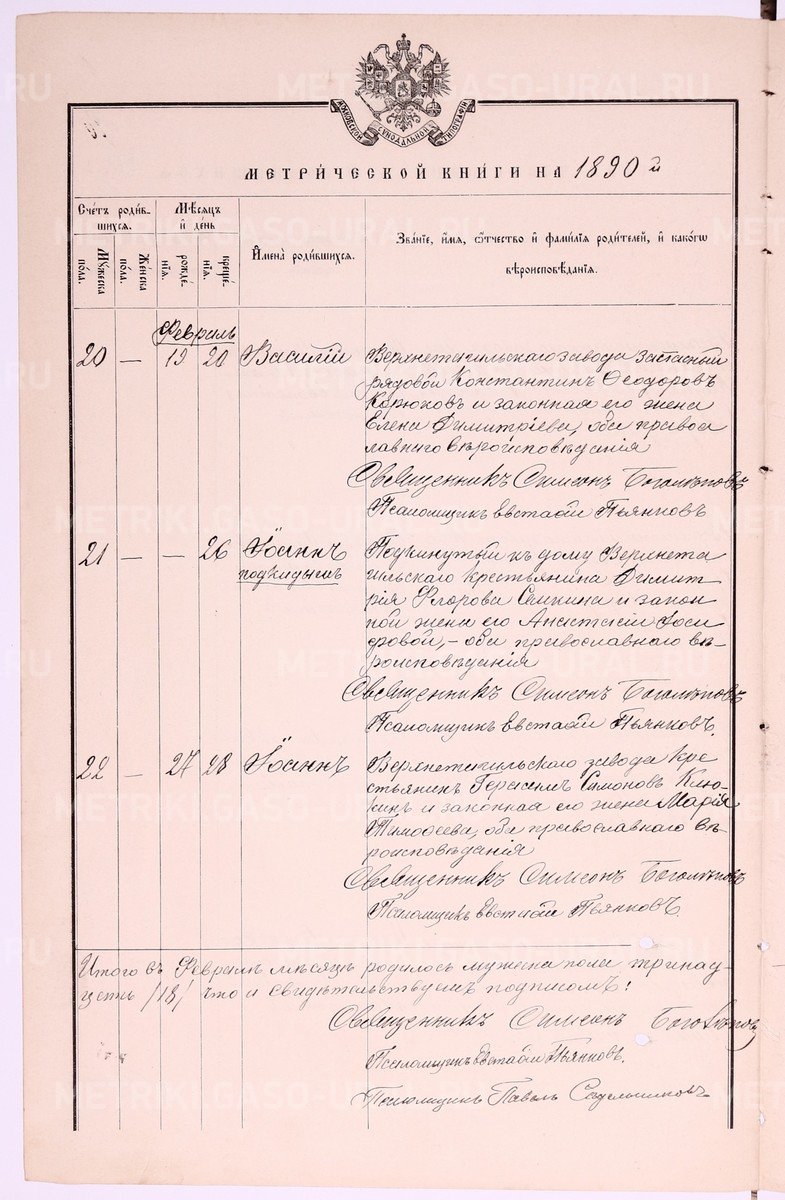 МОСКОВСКОЙ СѴНОДАЛЬНОЙ ТИПОГРАФІИ
МЕТРИ́ЧЕСКОЙ КНИ́ГИ НА 1890 й
Сче́тъ роди́в-
шихся.
Му́жеска
по́ла.
Же́нска
по́ла.
Мѣ́сяцъ
и҆ де́нь
рожде́-
нїя.
креще́-
нїя.
И҆мена̀ роди́вшихся.
Зва́нїе, и҆́мѧ, ѻ҆́тчество и҆ фами́лїѧ роди́телей, и҆ како́гѡ
вѣроисповѣ́данїѧ.
Февраль
20 — 19 20 Василій
Верхнетагильскаго завода запасный
рядовой Константинъ Ѳеодоровъ
Корюковъ и законная его жена
Елена Димитріева, оба правос
лавнаго вѣроисповѣданія
Священникъ Симеонъ Боголѣповъ
Псаломщикъ Евстафій Пьянковъ
21 — — 26 Іоаннъ
подкидышъ
Подкинутый къ дому Верхнета
гильскаго крестьянина Димит
рія Флорова Семкина и закон
ной жены его Анастасіи Іоси
фовой, – оба православнаго вѣ-
роисповѣданія
Священникъ Симеонъ Боголѣповъ
Псаломщикъ Евстафій Пьянковъ.
22 — 27 28 Іоаннъ
Верхнетагильскаго завода кре
стьянинъ Герасимъ Симоновъ Клю-
кинъ и законная его жена Марія
Тимоѳеева, оба православнаго вѣ-
роисповѣданія
Священникъ Симеонъ Боголѣповъ
Псаломщикъ Евстафій Пьянковъ.
Итого въ Февралѣ мѣсяцѣ родилось мужеска пола тринад-
цать /13/ что и свидѣтельствуемъ подписомъ:
Священникъ Симеонъ Боголѣповъ
Псаломщикъ Евстафій Пьянковъ.
Псаломщикъ Павелъ
METRIKI.GASO-URAL.RU